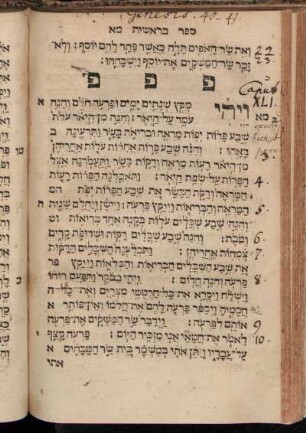 Genesis. 40-41
ספר בראשית מא
ואת שר האופים תלה כאשר פתר להם יוסף׃ ולא 22
זכר שר המשקים את יוסף וישכחהו׃ 23.
פ פ פ
Caput
XLI.
ויהי מקץ שנתים ימים ופרעה חולם והנה א
עמד על היאר׃ והנה מן היאר עלת מא
שבע פרות יפות מראה ובריאת בשר ותרעינה ב
באחו׃ והנה שבע פרות אחרות עלות אחריהן 3.
מן היאר רעות מראה ודקות בשר ותעמדנה אצל
הפרות על שפת היאר׃ ותאכלנה הפרות רעות 4.
המראה ודקת הבשר את שבע הפרות יפת
המראה והבריאות וייקץ פרעה׃ ויישן ויחלם שנית ה 5.
והנה שבע שבלים עלות בקנה אחד בריאות
וטבות׃ והנה שבע שבלים דקות ושדופת קדים 6.
צמחות אחריהן׃ ותבלענה השבלים הדקות 7.
את שבע השבלים הבריאות והמלאות וייקץ
פרעה והנה חלום׃ ויהי בבקר ותפעם רוחו 8.
וישלח ויקרא את כל חרטמי מצרים ואת כל
חכמיה ויספר פרעה להם את חלמו ואין פותר
אותם לפרעה׃ וידבר שר המשקים את פרעה 9
לאמר את חטאי אני מזכיר היום׃ פרעה קצף י 10
על עבדיו ויתן אתי במשמר בית שר הטבחים
אתי